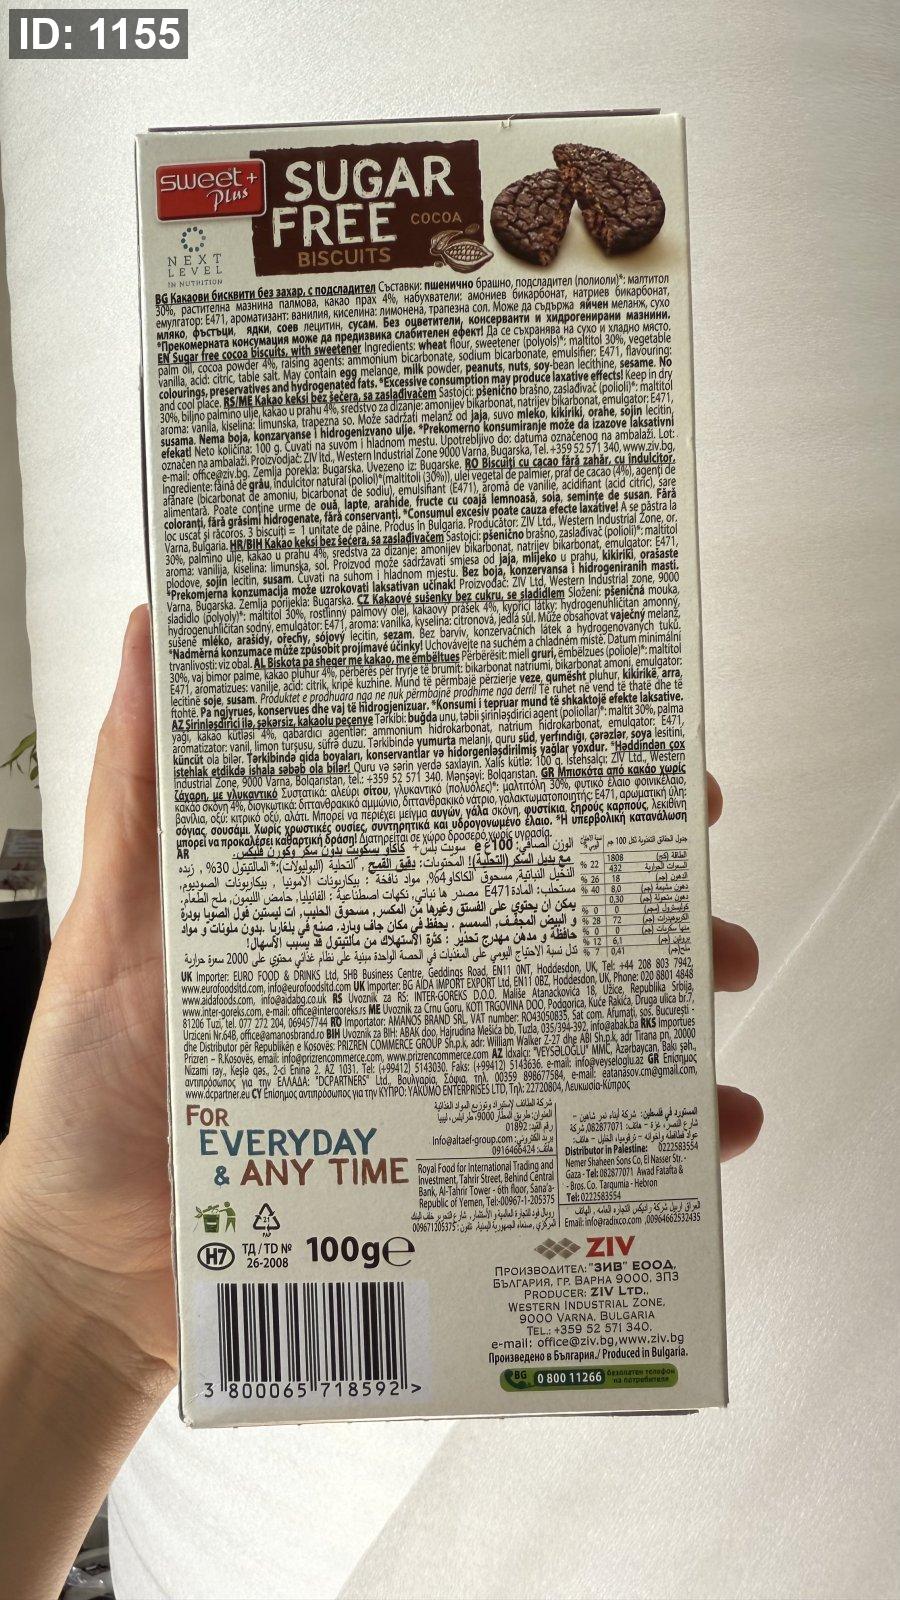 ID: 1155
sweet+
plus
SUGAR
FREE COCOA
BISCUITS
NEXT
LEVEL
IN NUTRITION
BG Какаови бисквити без захар, с подсладител Съставки: пшенично брашно, подсладител (полиоли)*: малтитол
30%, растителна мазнина палмова, какао прах 4%, набухватели: амониев бикарбонат, натриев бикарбонат,
емулгатор: E471, ароматизант: ванилия, киселина: лимонена, трапезна сол. Може да съдържа яйчен меланж, сухо
мляко, фъстъци, ядки, соев лецитин, сусам. Без оцветители, консерванти и хидрогенирани мазнини.
*Прекомерната консумация може да предизвика слабителен ефект! Да се съхранява на сухо и хладно място.
EN Sugar free cocoa biscuits, with sweetener Ingredients: wheat flour, sweetener (polyols)*: maltitol 30%, vegetable
palm oil, cocoa powder 4%, raising agents: ammonium bicarbonate, sodium bicarbonate, emulsifier: E471, flavouring:
vanilla, acid: citric, table salt. May contain egg melange, milk powder, peanuts, nuts, soy-bean lecithine, sesame. No
colourings, preservatives and hydrogenated fats. *Excessive consumption may produce laxative effects! Keep in dry
and cool place. RS/ME Kakao keksi bez šećera, sa zaslađivačem Sastojci: pšenično brašno, zaslađivač (polioli)*: maltitol
30%, biljno palmino ulje, kakao u prahu 4%, sredstvo za dizanje: amonijev bikarbonat, natrijev bikarbonat, emulgator: E471,
aroma: vanila, kiselina: limunska, trapezna so. Može sadržati melanž od jaja, suvo mleko, kikiriki, orahe, sojin lecitin,
susama. Nema boja, konzarvanse i hidrogenizvano ulje. *Prekomerno konsumiranje može da izazove laksativni
efekat! Neto količina: 100 g. Čuvati na suvom i hladnom mestu. Upotrebljivo do: datuma označenog na ambalaži. Lot:
označen na ambalaži. Proizvodjač: ZIV ltd., Western Industrial Zone 9000 Varna, Bugarska, Tel. +359 52 571 340, www.ziv.bg,
e-mail: office@ziv.bg. Zemlja porekla: Bugarska. Uvezeno iz: Bugarske. RO Biscuiți cu cacao fără zahăr, cu îndulcitor.
Ingrediente: făină de grâu, îndulcitor natural (poliol)*(maltitoli (30%)), ulei vegetal de palmier, praf de cacao (4%), agenți de
afânare (bicarbonat de amoniu, bicarbonat de sodiu), emulsifiant (E471), aromă de vanilie, acidifiant (acid citric), sare
alimentară. Poate conține urme de ouă, lapte, arahide, fructe cu coajă lemnoasă, soia, semințe de susan. Fără
coloranți, fără grăsimi hidrogenate, fără conservanți. *Consumul excesiv poate cauza efecte laxative! A se păstra la
loc uscat și răcoros. 3 biscuiți = 1 unitate de pâine. Produs în Bulgaria. Producător: ZIV Ltd., Western Industrial Zone, or.
Varna, Bulgaria. HR/BIH Kakao keksi bez šećera, sa zaslađivačem Sastojci: pšenično brašno, zaslađivač (polioli)*: maltitol
30%, palmino ulje, kakao u prahu 4%, sredstva za dizanje: amonijev bikarbonat, natrijev bikarbonat, emulgator: E471,
aroma: vanilija, kiselina: limunska, sol. Proizvod može sadržavati smjesa od jaja, mlijeko u prahu, kikiriki, orašaste
plodove, sojin lecitin, susam. Čuvati na suhom i hladnom mjestu. Bez boja, konzervansa i hidrogeniranih masti.
*Prekomjerna konzumacija može uzrokovati laksativan učinak! Proizvođač: ZIV Ltd, Western Industrial zone, 9000
Varna, Bugarska. Zemlja porijekla: Bugarska. CZ Kakaové sušenky bez cukru, se sladidlem Složení: pšeničná mouka,
sladidlo (polyoly)*: maltitol 30%, rostlinný palmový olej, kakaový prášek 4%, kypřící látky: hydrogenuhličitan amonný,
hydrogenuhličitan sodný, emulgátor: E471, aroma: vanilka, kyselina: citronová, jedlá sůl. Může obsahovat vaječný melanž,
sušené mléko, arašídy, ořechy, sójový lecitin, sezam. Bez barviv, konzervačních látek a hydrogenovaných tuků.
*Nadměrná konzumace může způsobit projímavé účinky! Uchovávejte na suchém a chladném místě. Datum minimální
trvanlivosti: viz obal. AL Biskota pa sheqer me kakao, me ëmbëltues Përbërësit: miell gruri, ëmbëlzues (poliole)*: maltitol
30%, vaj bimor palme, kakao pluhur 4%, përbërës për fryrje të brumit: bikarbonat natriumi, bikarbonat amoni, emulgator:
E471, aromatizues: vanilje, acid: citrik, kripë kuzhine. Mund të përmbajë përzierje veze, qumësht pluhur, kikirikë, arra,
lecitinë soje, susam. Produktet e prodhuara nga ne nuk përmbajnë prodhime nga derri! Të ruhet në vend të thatë dhe të
ftohtë. Pa ngjyrues, konservues dhe vaj të hidrogjenizuar. *Konsumi i tepruar mund të shkaktojë efekte laksative.
AZ Şirinləşdirici ilə, şəkərsiz, kakaolu peçenye Tərkibi: buğda unu, təbii şirinləşdirici agent (poliollar)*: maltit 30%, palma
yağı, kakao kütləsi 4%, qabardıcı agentlər: ammonium hidrokarbonat, natrium hidrokarbonat, emulqator: E471,
aromatizator: vanil, limon turşusu, süfrə duzu. Tərkibində yumurta melanjı, quru süd, yerfındığı, çərəzlər, soya lesitini,
küncüt ola bilər. Tərkibində qida boyaları, konservantlar və hidorgenləşdirilmiş yağlar yoxdur. *Həddindən çox
istehlak etdikdə ishala səbəb ola bilər! Quru və sərin yerdə saxlayın. Xalis kütlə: 100 q. İstehsalçı: ZIV Ltd., Western
Industrial Zone, 9000 Varna, Bolqarıstan, tel.: +359 52 571 340. Mənşəyi: Bolqarıstan. GR Μπισκότα από κακάο χωρίς
ζάχαρη, με γλυκαντικό Συστατικά: αλεύρι σίτου, γλυκαντικό (πολυόλες)*: μαλτιτόλη 30%, φυτικό έλαιο φοινικέλαιο,
κακάο σκόνη 4%, διογκωτικά: διττανθρακικό αμμώνιο, διττανθρακικό νάτριο, γαλακτωματοποιητής: E471, αρωματική ύλη:
βανίλια, οξύ: κιτρικό οξύ, αλάτι. Μπορεί να περιέχει μείγμα αυγών, γάλα σκόνη, φυστίκια, ξηρούς καρπούς, λεκιθίνη
σόγιας, σουσάμι. Χωρίς χρωστικές ουσίες, συντηρητικά και υδρογονωμένο έλαιο. *Η υπερβολική κατανάλωση
μπορεί να προκαλέσει καθαρτική δράση! Διατηρείται σε χώρο δροσερό χωρίς υγρασία.
AR
الوزن الصافي: 100غ e سويت بلس+ كاكاو بسكويت بدون سكر وكورن فليكس.
مع بديل السكر (التحلية)! المحتويات: دقيق القمح , التحلية (البوليولات):* المالتيتول 30%, زبده
النخيل النباتية, مسحوق الكاكاو 4%, مواد نافخة : بيكاربونات الامونيا , بيكاربونات الصوديوم,
مستحلب: المادة E471 مصدر ها نباتي, نكهات اصطناعية : الفانيليا, حامض الليمون, ملح الطعام.
يمكن ان يحتوي على الفستق وغيرها من المكسر , مسحوق الحليب, ات ليستين فول الصويا بودرة
و البيض المجفف, السمسم . يحفظ في مكان جاف وبارد. صنع في بلغاريا .بدون ملونات و مواد
حافظة و مدهن مهدرج تحذير : كثرة الاستهلاك من مالتيتول قد يسبب الأسهال!
تدل نسبة الاحتياج اليومي على المغذيات في الحصة الواحدة مبنية على نظام غذائي محتوي على 2000 سعرة حرارية
جدول الحقائق التغذوية لكل 100 جم
الطاقة (كج) 1808
السعرات الحرارية 432 22 %
الدهون (جم) 18 26 %
دهون مشبعة (جم) 8,0 40 %
دهون متحولة (جم) 0,30
كوليسترول (مجم) 0 0 %
الكربوهيدرات (جم) 72 28 %
منها سكريات (جم) 0 0 %
بروتين (جم) 6,1 12 %
ملح (جم) 0,41 7 %
UK Importer: EURO FOOD & DRINKS Ltd, SHB Business Centre, Geddings Road, EN11 0NT, Hoddesdon, UK, Tel: +44 208 803 7942,
www.eurofoodsltd.com, info@eurofoodsltd.com UK Importer: BG AIDA IMPORT EXPORT Ltd, EN11 0BZ, Hoddesdon, UK, Phone: 020 8801 4848
www.aidafoods.com, info@aidabg.co.uk RS Uvoznik za RS: INTER-GOREKS D.O.O. Mališe Atanackovića 18, Užice, Republika Srbija,
www.inter-goreks.com, e-mail: office@intergoreks.rs ME Uvoznik za Crnu Goru, KOTI TRGOVINA DOO, Podgorica, Kuće Rakića, Druga ulica br.7,
81206 Tuzi, tel. 077 272 204, 069457744 RO Importator: AMANOS BRAND SRL, VAT number: RO43050835, Sat com. Afumați, șos. București -
Urziceni Nr.64B, office@amanosbrand.ro BIH Uvoznik za BIH: ABAK doo, Hajrudina Mešića bb, Tuzla, 035/394-392, info@abak.ba RKS Importues
dhe Distributor për Republikën e Kosovës: PRIZREN COMMERCE GROUP Sh.p.k, adr: William Walker Z-27 dhe ABI Sh.p.k, adr Tirana pn, 20000
Prizren - R.Kosovës, email: info@prizrencommerce.com, www.prizrencommerce.com AZ İdxalçı: "VEYSƏLOĞLU" MMC, Azərbaycan, Bakı şəh.,
Nizami ray., Keşlə qəs., 2-ci Eninə 2. AZ 1031. Tel: (+99412) 5143030. Faks: (+99412) 5143636, e-mail: info@veyseloglu.az GR Επίσημος
αντιπρόσωπος για την ΕΛΛΑΔΑ: "DCPARTNERS" Ltd., Βουλγαρία, Σόφια, τηλ. 00359 898677584, e-mail: eatanasov.cm@gmail.com,
www.dcpartner.eu CY Επίσημος αντιπρόσωπος για την ΚΥΠΡΟ: YAKUMO ENTERPRISES LTD, Τηλ: 22720804, Λευκωσία-Κύπρος
FOR
EVERYDAY
& ANY TIME
شركة الطائف لإستيراد وتوزيع المواد الغذائية
العنوان: طريق المطار 9000- طرابلس، ليبيا
رقم القيد: 01892
بريد الكتروني: Info@altaef-group.com
هاتف: 0916466424
Royal Food for International Trading and
Investment, Tahrir Street, Behind Central
Bank, Al-Tahrir Tower - 6th floor, Sana'a-
Republic of Yemen, Tel:00967-1-205375
رويال فود للتجارة العالمية و الأستثمار, شارع التحرير خلف البنك
المركزي, صنعاء الجمهورية اليمنية, تلفون: 009671205375
المستورد في فلسطين: شركة أبناء نمر شاهين -
شارع النصر، غزة - هاتف: 082877071, شركة
عواد فطافطه وإخوانه - ترقوميا، الخليل - هاتف:
0222583554 Distributor in Palestine:
Nemer Shaheen Sons Co, El Nasser Str. -
Gaza - Tel: 082877071 Awad Fatafta &
- Bros. Co. Tarqumia - Hebron
Tel: 0222583554
العراق اربيل شركة راديكس التجاره العامه , الهاتف
Email: info@radixco.com ,00964662532435
21
PAP
H7
ТД / TD №
26-2008
100g e
ZIV
ПРОИЗВОДИТЕЛ: "ЗИВ" ЕООД,
БЪЛГАРИЯ, ГР. ВАРНА 9000, ЗПЗ
PRODUCER: ZIV LTD.,
WESTERN INDUSTRIAL ZONE,
9000 VARNA, BULGARIA
TEL.: +359 52 571 340,
e-mail: office@ziv.bg,www.ziv.bg
Произведено в България./ Produced in Bulgaria.
BG 0 800 11266 безплатен телефон
на потребителя
3 800065 718592 >